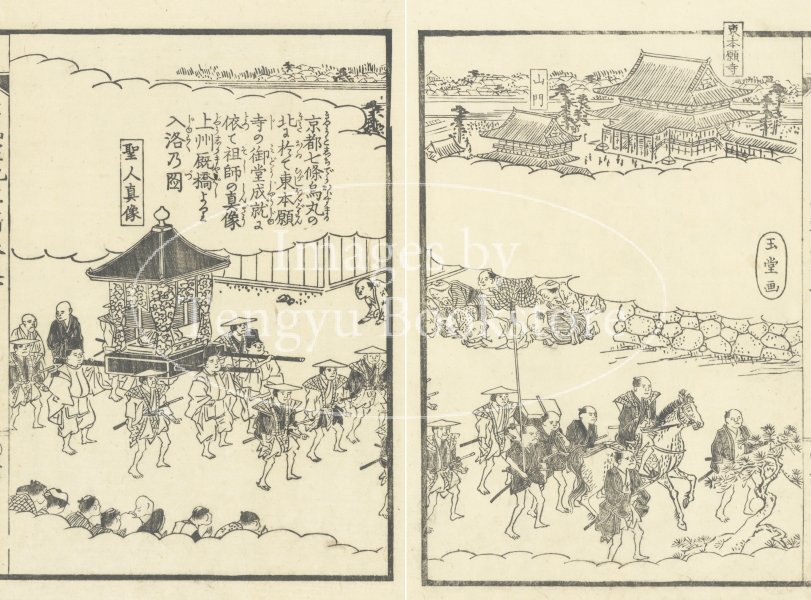 東本願寺
山門
玉堂画
京都七條烏丸の
北に於て東本願
寺の御堂成就に
依て祖師の真像
上州厩橋より
入洛乃圖
聖人真像
Images by
Tengyu Bookstore